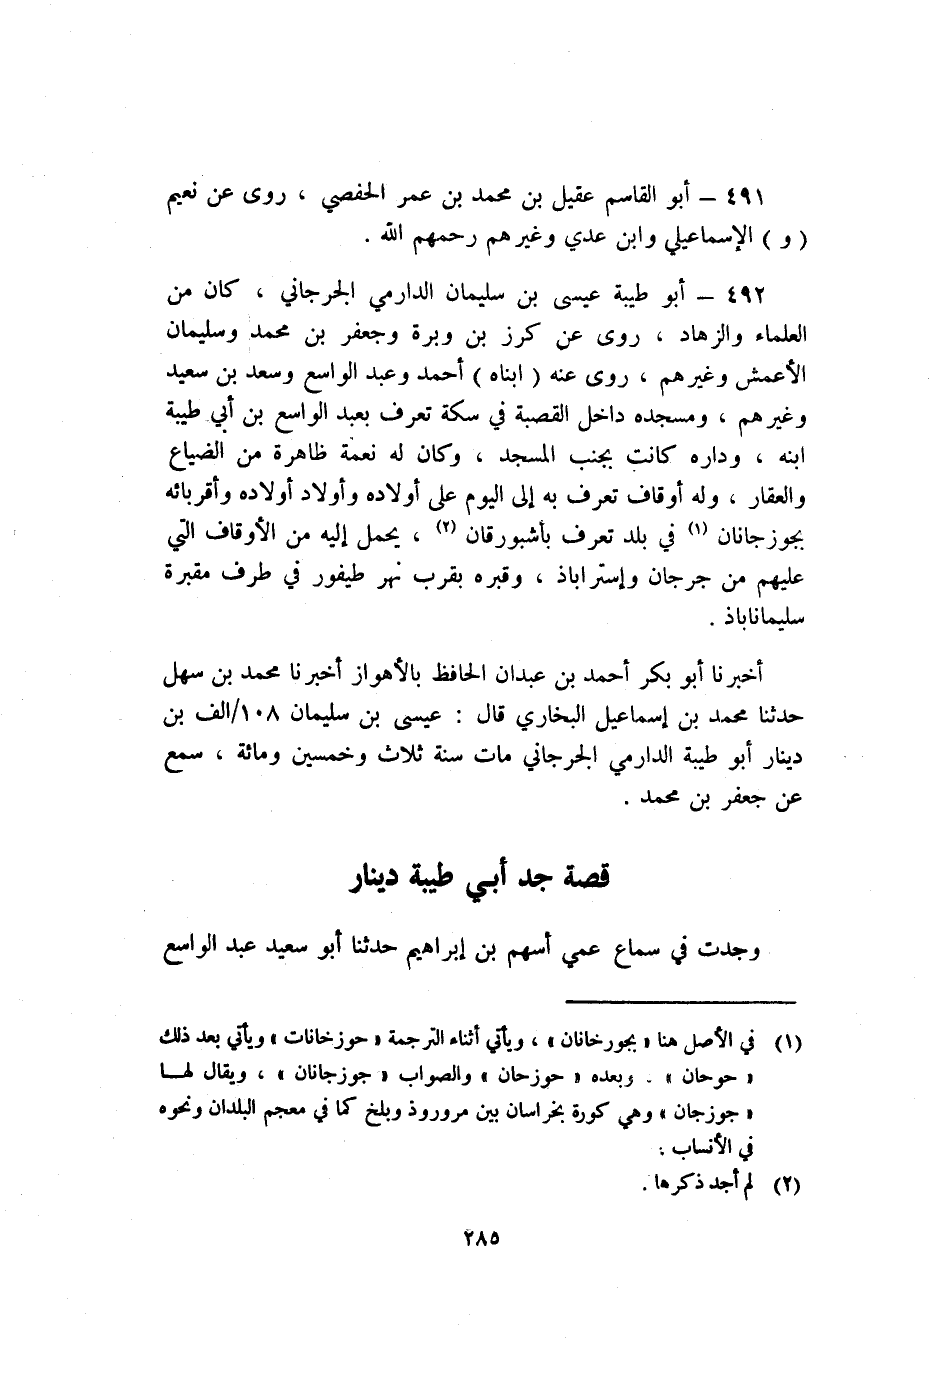 ٤٩١ – أبو القاسم عقيل بن محمد بن عمر الحفصي ، روى عن نعيم
( و ) الإسماعيلي وابن عدي وغيرهم رحمهم الله .
٤٩٢ – أبو طيبة عيسى بن سليمان الدارمي الجرجاني ، كان من
العلماء والزهاد ، روى عن كرز بن وبرة وجعفر بن محمد وسليمان
الأعمش وغيرهم ، روى عنه ( ابناه ) أحمد وعبد الواسع وسعد بن سعيد
وغيرهم ، ومسجده داخل القصبة في سكة تعرف بعبد الواسع بن أبي طيبة
ابنه ، وداره كانت بجنب المسجد ، وكان له نعمة ظاهرة من الضياع
والعقار ، وله أوقاف تعرف به إلى اليوم على أولاده وأولاد أولاده وأقربائه
بجوزجانان (١) في بلد تعرف بأشبورقان (٢) ، يحمل إليه من الأوقاف التي
عليهم من جرجان وإستراباذ ، وقبره بقرب نهر طيفور في طرف مقبرة
سليماناباذ .
أخبرنا أبو بكر أحمد بن عبدان الحافظ بالأهواز أخبرنا محمد بن سهل
حدثنا محمد بن إسماعيل البخاري قال : عيسى بن سليمان ١٠٨/الف بن
دينار أبو طيبة الدارمي الجرجاني مات سنة ثلاث وخمسين ومائة ، سمع
عن جعفر بن محمد .
قصة جد أبي طيبة دينار
وجدت في سماع عمي أسهم بن إبراهيم حدثنا أبو سعيد عبد الواسع
(١) في الأصل هنا « بجورخانان » ، ويأتي أثناء الترجمة « حوزخانات » ويأتي بعد ذلك
« حوحان » . وبعده « حوزحان » والصواب « جوزجانان » ، ويقال لهـا
« جوزجان » وهي كورة بخراسان بين مروروذ وبلخ كما في معجم البلدان ونحوه
في الأنساب .
(٢) لم أجد ذكرها .
٢٨٥